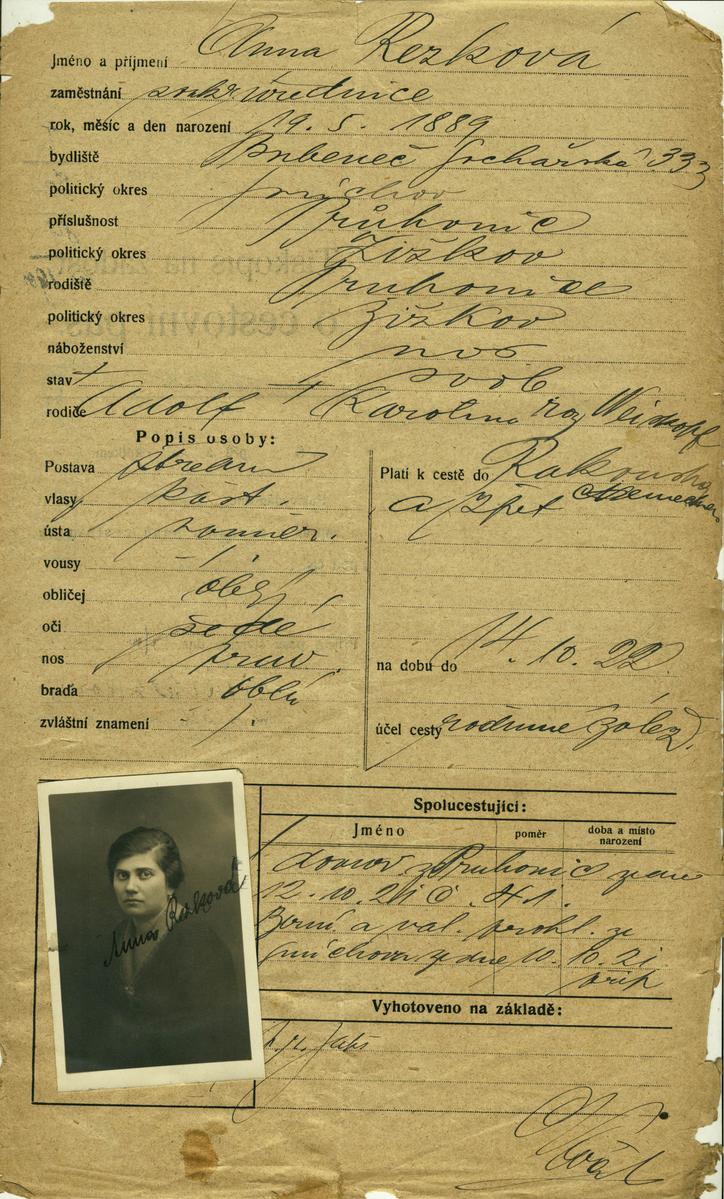 Jméno a příjmení Anna Rezková
zaměstnání soukr úřednice
rok, měsíc a den narození 19. 5. 1889
bydliště Bubeneč Sochařská 333
politický okres Smíchov
příslušnost Průhonic
politický okres Žižkov
rodiště Průhonice
politický okres Žižkov
náboženství
stav svob
rodiče Adolf + Karolina roz Weiskopf
Popis osoby:
Postava střední
vlasy kašt.
ústa souměr.
vousy -/-
obličej obl.
oči šedé
nos prav.
brada oblá
zvláštní znamení - /.
Platí k cestě do Rakouska
a zpět Německa
na dobu do 14. 10. 22.
účel cesty rodinné zálež.
Spolucestující:
Jméno poměr doba a místo narození
domov. z Průhonic ze dne
12. 10. 21 č. 41.
Berní a val. prohl. ze
Smíchova ze dne 10. 10. 21.
přip
Anna Rezková
Vyhotoveno na základě: